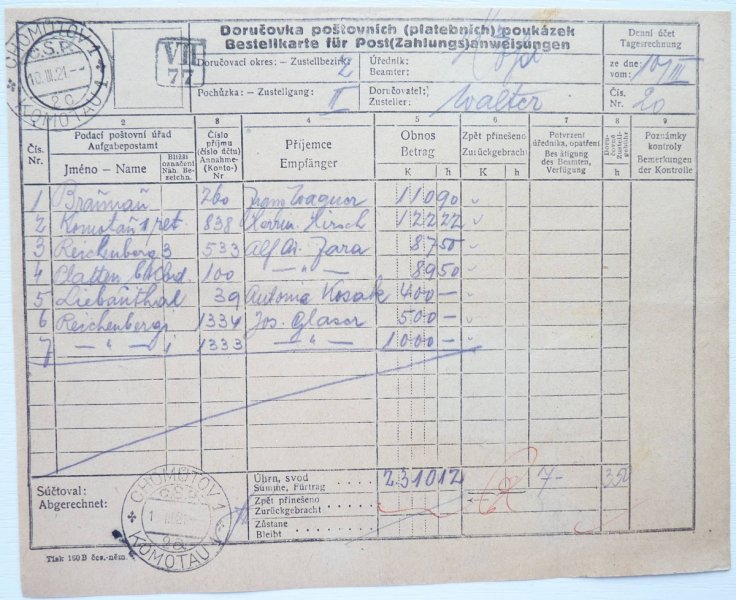 CHOMUTOV 1
Č.S.P.
10.III.21.-
2a
KOMOTAU 1
VII
77
Doručovka poštovních (platebních) poukázek
Bestellkarte für Post(Zahlungs)anweisungen
Doručovací okres: – Zustellbezirk: 2
Úředník:
Beamter:
Pochůzka: – Zustellgang: II
Doručovatel:
Zusteller: Walter
Denní účet
Tagesrechnung
ze dne:
vom: 10/III
Čís.
Nr. 20
2 3 4 5 6 7 8 9
Čís.
Nr.
Podací poštovní úřad
Aufgabepostamt
Jméno – Name
Bližší
označení
Näh. Be-
zeichn.
Číslo
příjmu
(číslo účtu)
Annahme-
(Konto-)
Nr
Příjemce
Empfänger
Obnos
Betrag
K h
Zpět přinešeno
Zurückgebracht
K h
Potvrzení
úředníka, opatření
Bestätigung
des Beamten,
Verfügung
Doru-
čovné
Zustell-
gebühr
h
Poznámky
kontroly
Bemerkungen
der Kontrolle
1 Braunau 260 Franz Wagner 110 90
2 838 Herrm. Hirsch 122 22
3 Reichenberg 3 533 87 50
4 Platten 100 – " – 89 50
5 Liebauthal 39 Antonie Kosak 400 –
6 Reichenberg 1 1334 Jos. Glaser 500 –
7 – " – 1 1333 – " – 1000 –
Súčtoval:
Abgerechnet:
CHOMUTOV 1
Č.S.P.
KOMOTAU 1
Úhrn, svod
Summe, Fürtrag 2310 12 7- 350
Zpět přinešeno
Zurückgebracht
Zůstane
Bleibt
Tisk 160 B čes.-něm